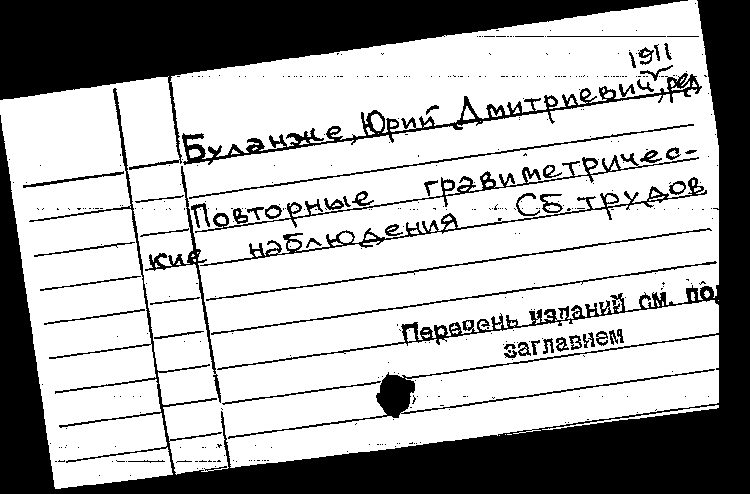 1911
Буланже, Юрий Дмитриевич, ред
Повторные гравиметричес-
кие наблюдения. Сб. трудов
Перечень изданий см. под
заглавием